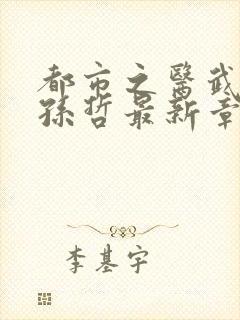 都市之醫武
孫哲最新章
李基宇